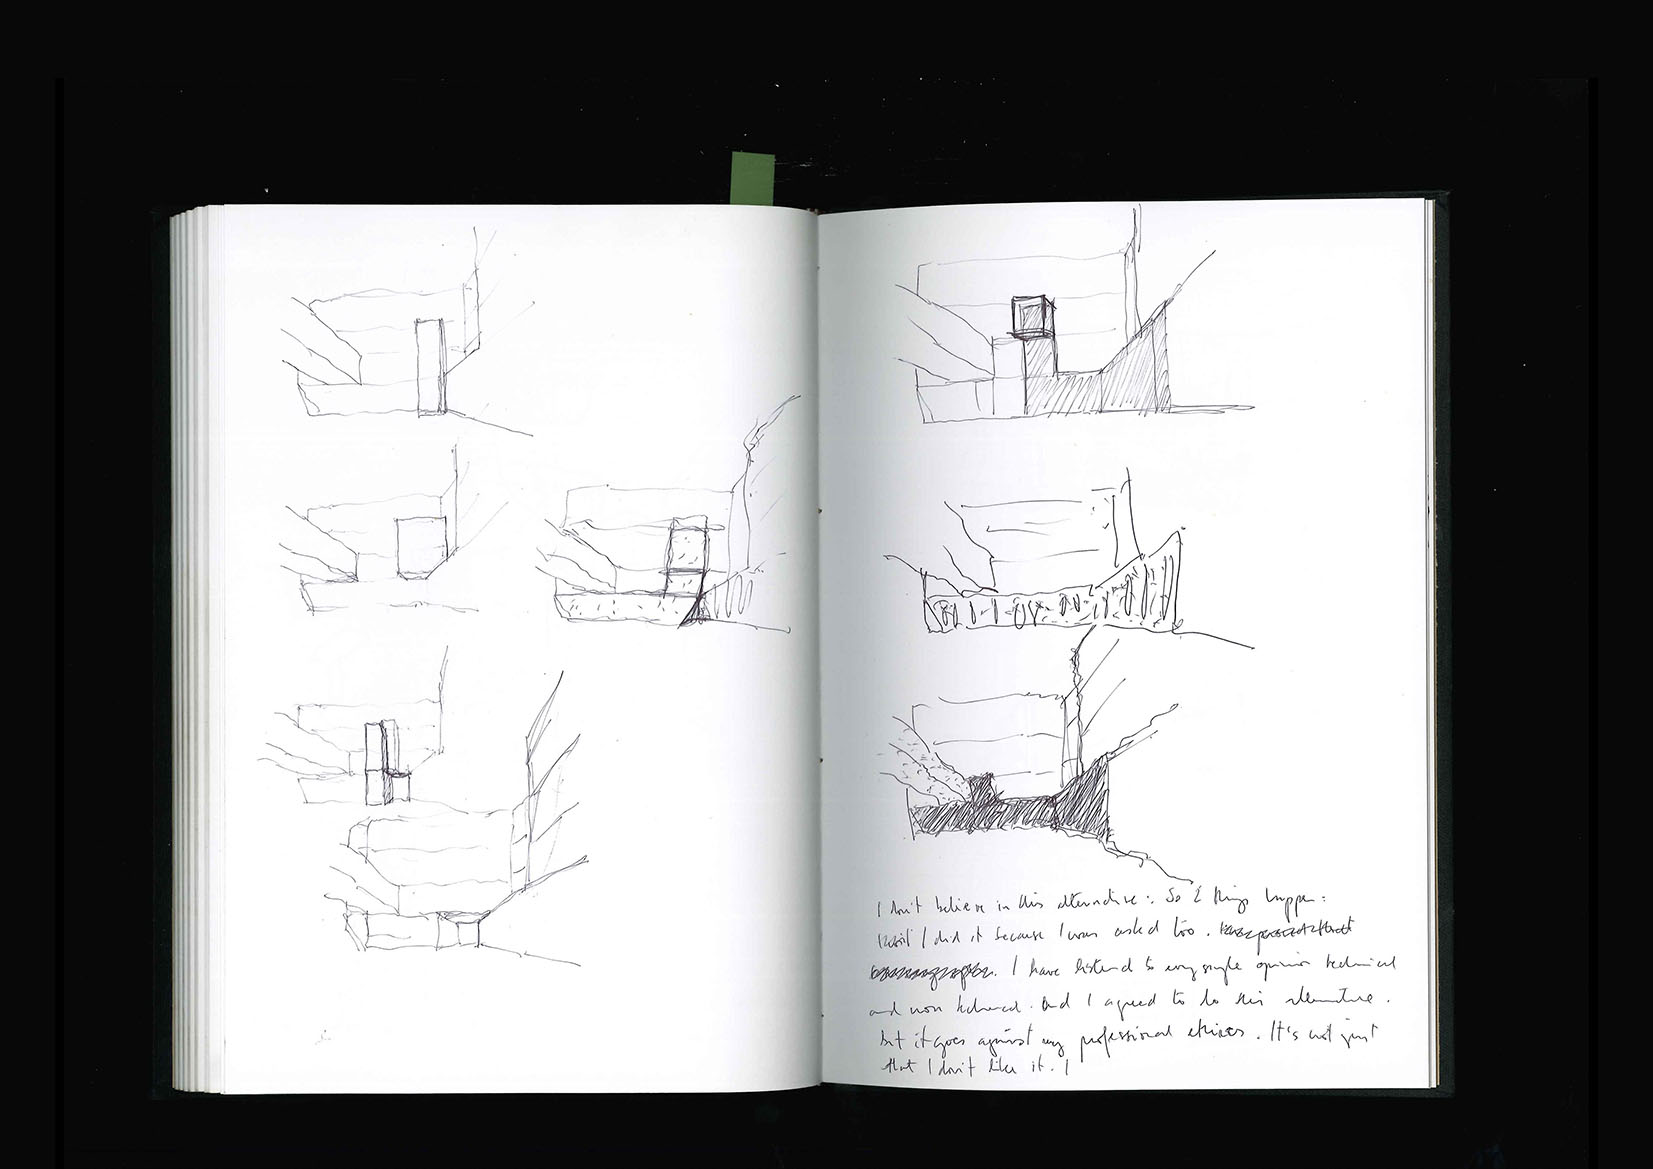 I don't believe in this alternative :. So 2 things happen :
I did it because I was asked too.
I have listend to every single opinion technical
and non technical. And I agreed to do this alternative.
but it goes against my professional ethics. It's not just
that I don't like it. I